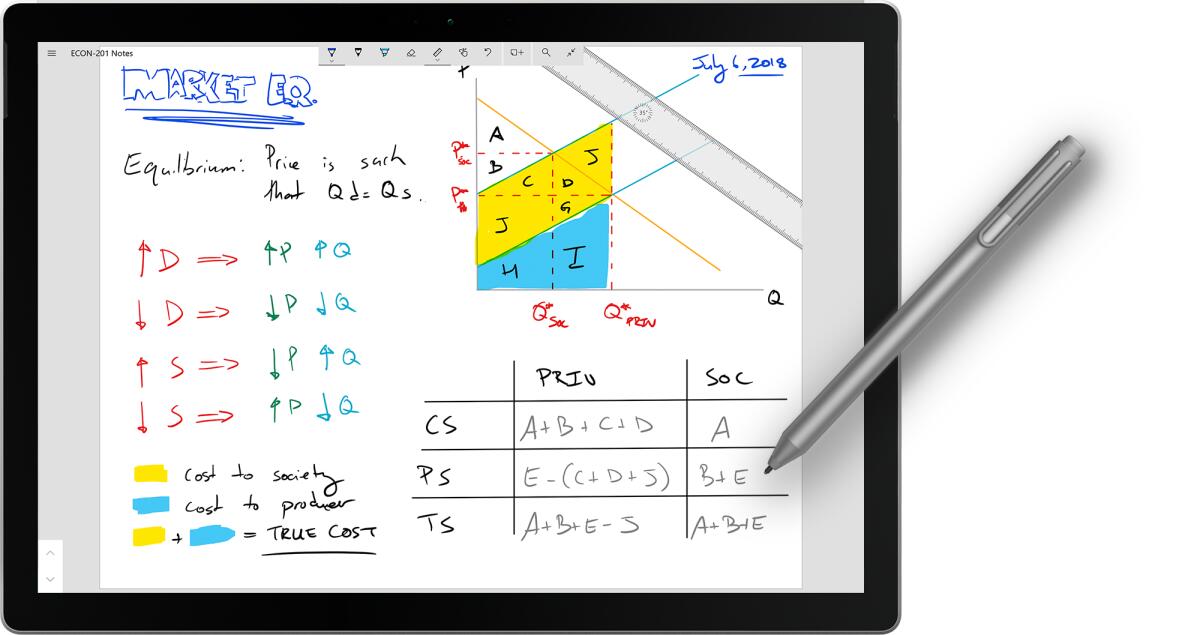 ECON-201 Notes
MARKET EQ.
July 6, 2018
Equilbrium: Price is such
that Qd = Qs.
↑ D ⇒ ↑P ↑Q
↓ D ⇒ ↓P ↓Q
↑ S ⇒ ↓P ↑Q
↓ S ⇒ ↑P ↓Q
cost to society
cost to producer
+ = TRUE COST
35°
A
P*soc
B
J
C D
G
J
H I
Q
Q*soc Q*PRIV
PRIV SOC
CS A+B+C+D A
PS E-(C+D+J) B+E
TS A+B+E-J A+B+E